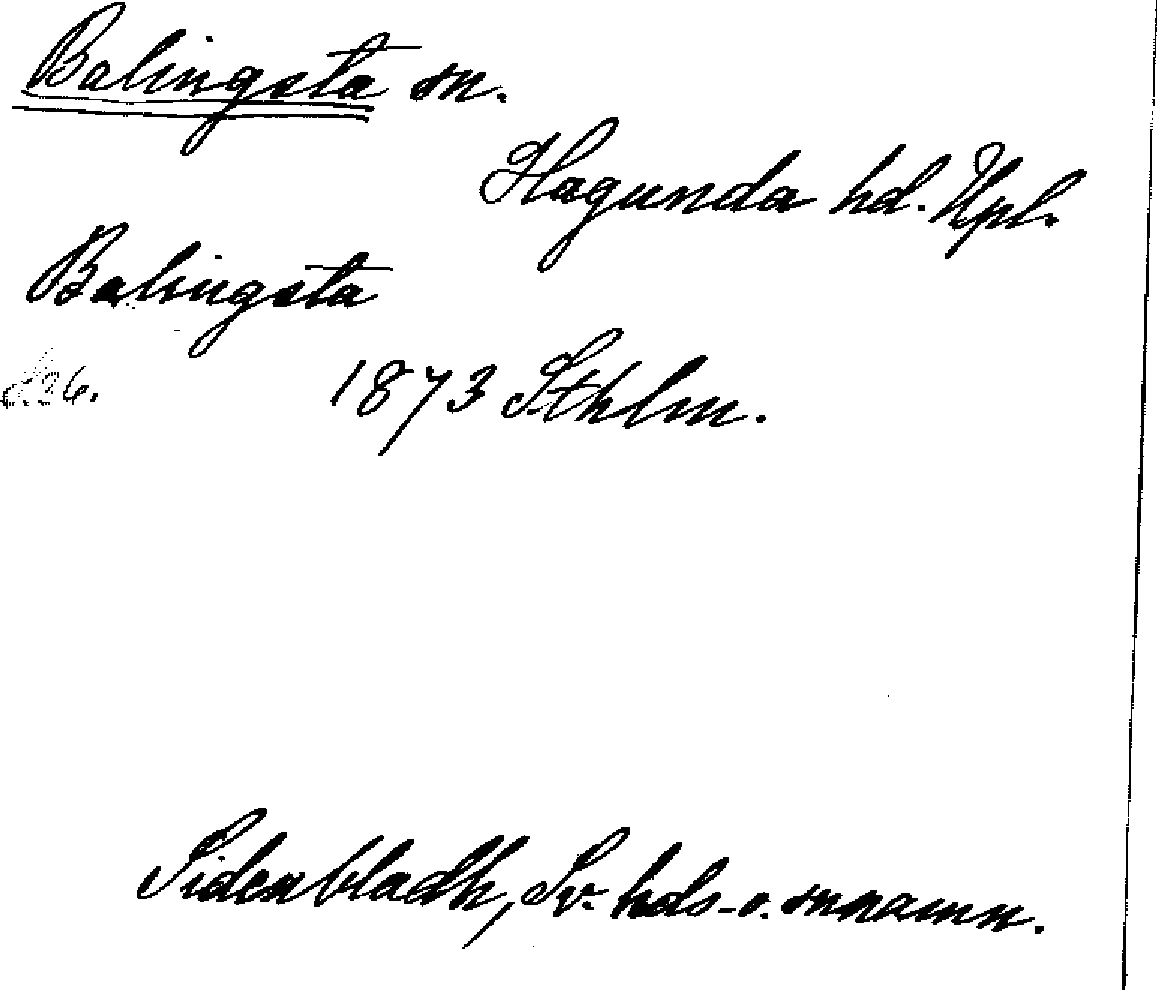 Balingsta sn.
Hagunda hd. Upl.
Balingsta
s. 36. 1873 Sthlm.
Sidenbladh, Sv. hds- o. snnamn.